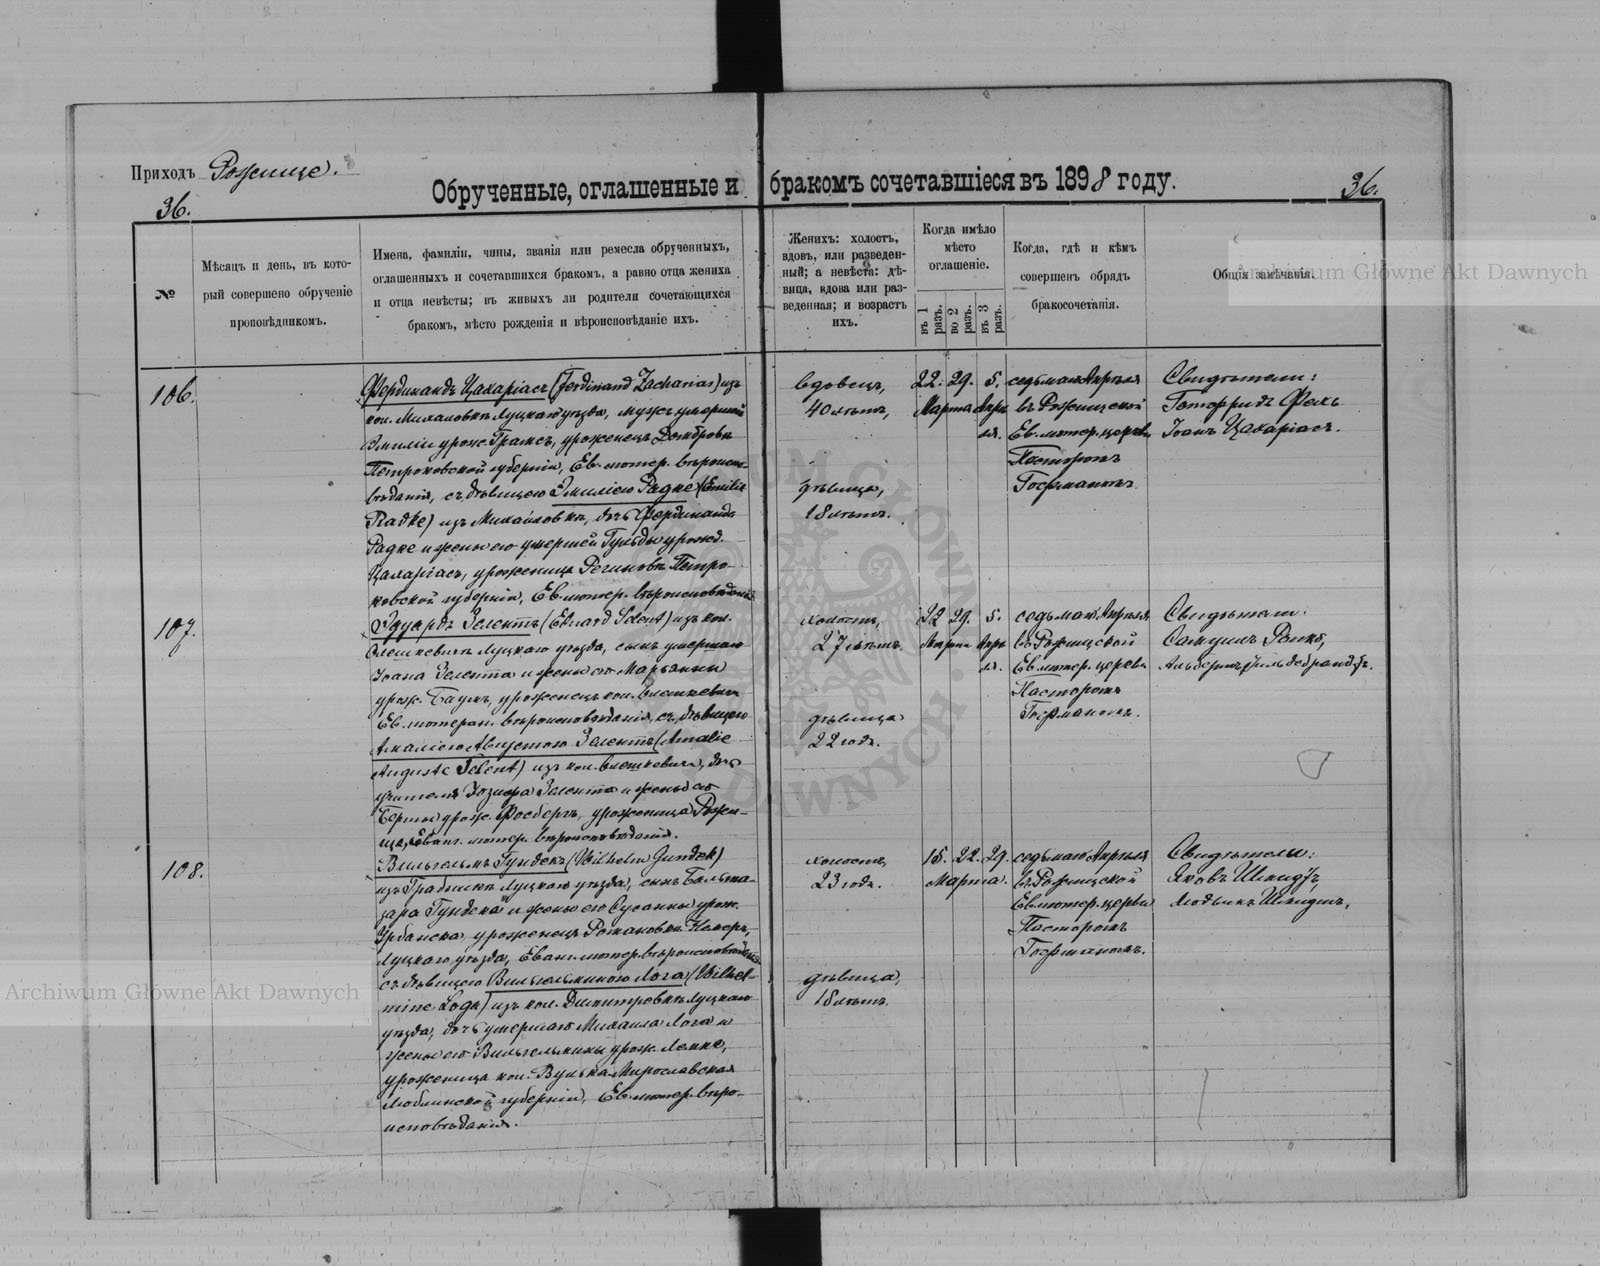 Приходъ Рожище.
Обрученные, оглашенные и бракомъ сочетавшіеся въ 1898 году.
36.
36.
№
Мѣсяцъ и день, въ кото-
рый совершено обрученіе
проповѣдникомъ.
Имена, фамиліи, чины, званія или ремесла обрученныхъ,
оглашенныхъ и сочетавшихся бракомъ, а равно отца жениха
и отца невѣсты; въ живыхъ ли родители сочетающихся
бракомъ, мѣсто рожденія и вѣроисповѣданіе ихъ.
Женихъ: холостъ,
вдовъ, или разведен-
ный; а невѣста: дѣ-
вица, вдова или раз-
веденная; и возрастъ
ихъ.
Когда имѣло
мѣсто
оглашеніе.
въ 1 разъ.
во 2 разъ.
въ 3 разъ.
Когда, гдѣ и кѣмъ
совершенъ обрядъ
бракосочетанія.
Общія замѣчанія.
106.
Фердинандъ Цахаріасъ (Ferdinand Zacharias) изъ
кол. Михаловки Луцкаго уѣзда, мужъ умершей
Эмиліи урож. Грамсъ, уроженецъ Домбровки
Петроковской губерніи, Ев. лютер. вѣроиспо-
вѣданія, съ дѣвицею Эмиліею Радке (Emilie
Radke) изъ Михаловки, дочь Фердинанда
Радке и жены его умершей Гульды урожд.
Цахаріасъ, уроженица Петро-
ковской губерніи, Ев. лютер. вѣроисповѣданія
вдовецъ,
40 лѣтъ,
дѣвица,
18 лѣтъ.
22. 29. 5.
Марта Апрѣ
ля.
седьмаго Апрѣля
въ Рожищской
Ев. лютер. церкви
Пасторомъ
Госрманомъ
Свидѣтели:
Готфридъ Фель
Іоанъ Цахаріасъ.
107.
Эдуардъ Зелентъ (Eduard Selent) изъ кол.
Олешкевичи Луцкаго уѣзда, сынъ умершаго
Іоана Зелента и жены его Марьянны
урож. Баумъ, уроженецъ кол. Олешкевичи
Ев. лютеран. вѣроисповѣданія, съ дѣвицею
Амаліею Августою Зелентъ (Amalie
Auguste Selent) изъ кол. Олешкевичи, дочь
учителя Іозефа Зелента и жены его
Берты урож. Фосбергъ, уроженица Рожи-
ща, Еванг. лютер. вѣроисповѣданія.
холостъ,
27 лѣтъ.
дѣвица
22 годъ.
22 29. 5.
Марта Апрѣ
ля.
седьмаго Апрѣля
въ Рожищской
Ев. лютер. церкви
Пасторомъ
Госрманомъ.
Свидѣтели:
Самуилъ Ранке,
Альбертъ Гильдебрандъ.
108.
Вильгельмъ Гундекъ (Wilhelm Gundek)
изъ Грабники Луцкаго уѣзда, сынъ Бальта-
зара Гундека и жены его Сусанны урож.
Урбанска уроженецъ Романовки
Луцкаго уѣзда, Еванг. лютер. вѣроисповѣданія
съ дѣвицею Вильгельминою Лога (Wilhel-
mine Loga) изъ кол. Дмитровки Луцкаго
уѣзда, дочь умершаго Михаила Лога и
жены его Вильгельмины урож. Лемке,
уроженица кол. Вулька Мирославская
Люблинской губерніи, Ев. лютер. вѣро-
исповѣданія.
холостъ,
23 годъ.
дѣвица,
18 лѣтъ.
15. 22. 29.
Марта.
седьмаго Апрѣля
въ Рожищской
Ев. лютер. церкви
Пасторомъ
Госрманомъ.
Свидѣтели:
Яковъ Шмидтъ,
Людвикъ Шмидтъ.
Archiwum Główne Akt Dawnych
Archiwum Główne Akt Dawnych